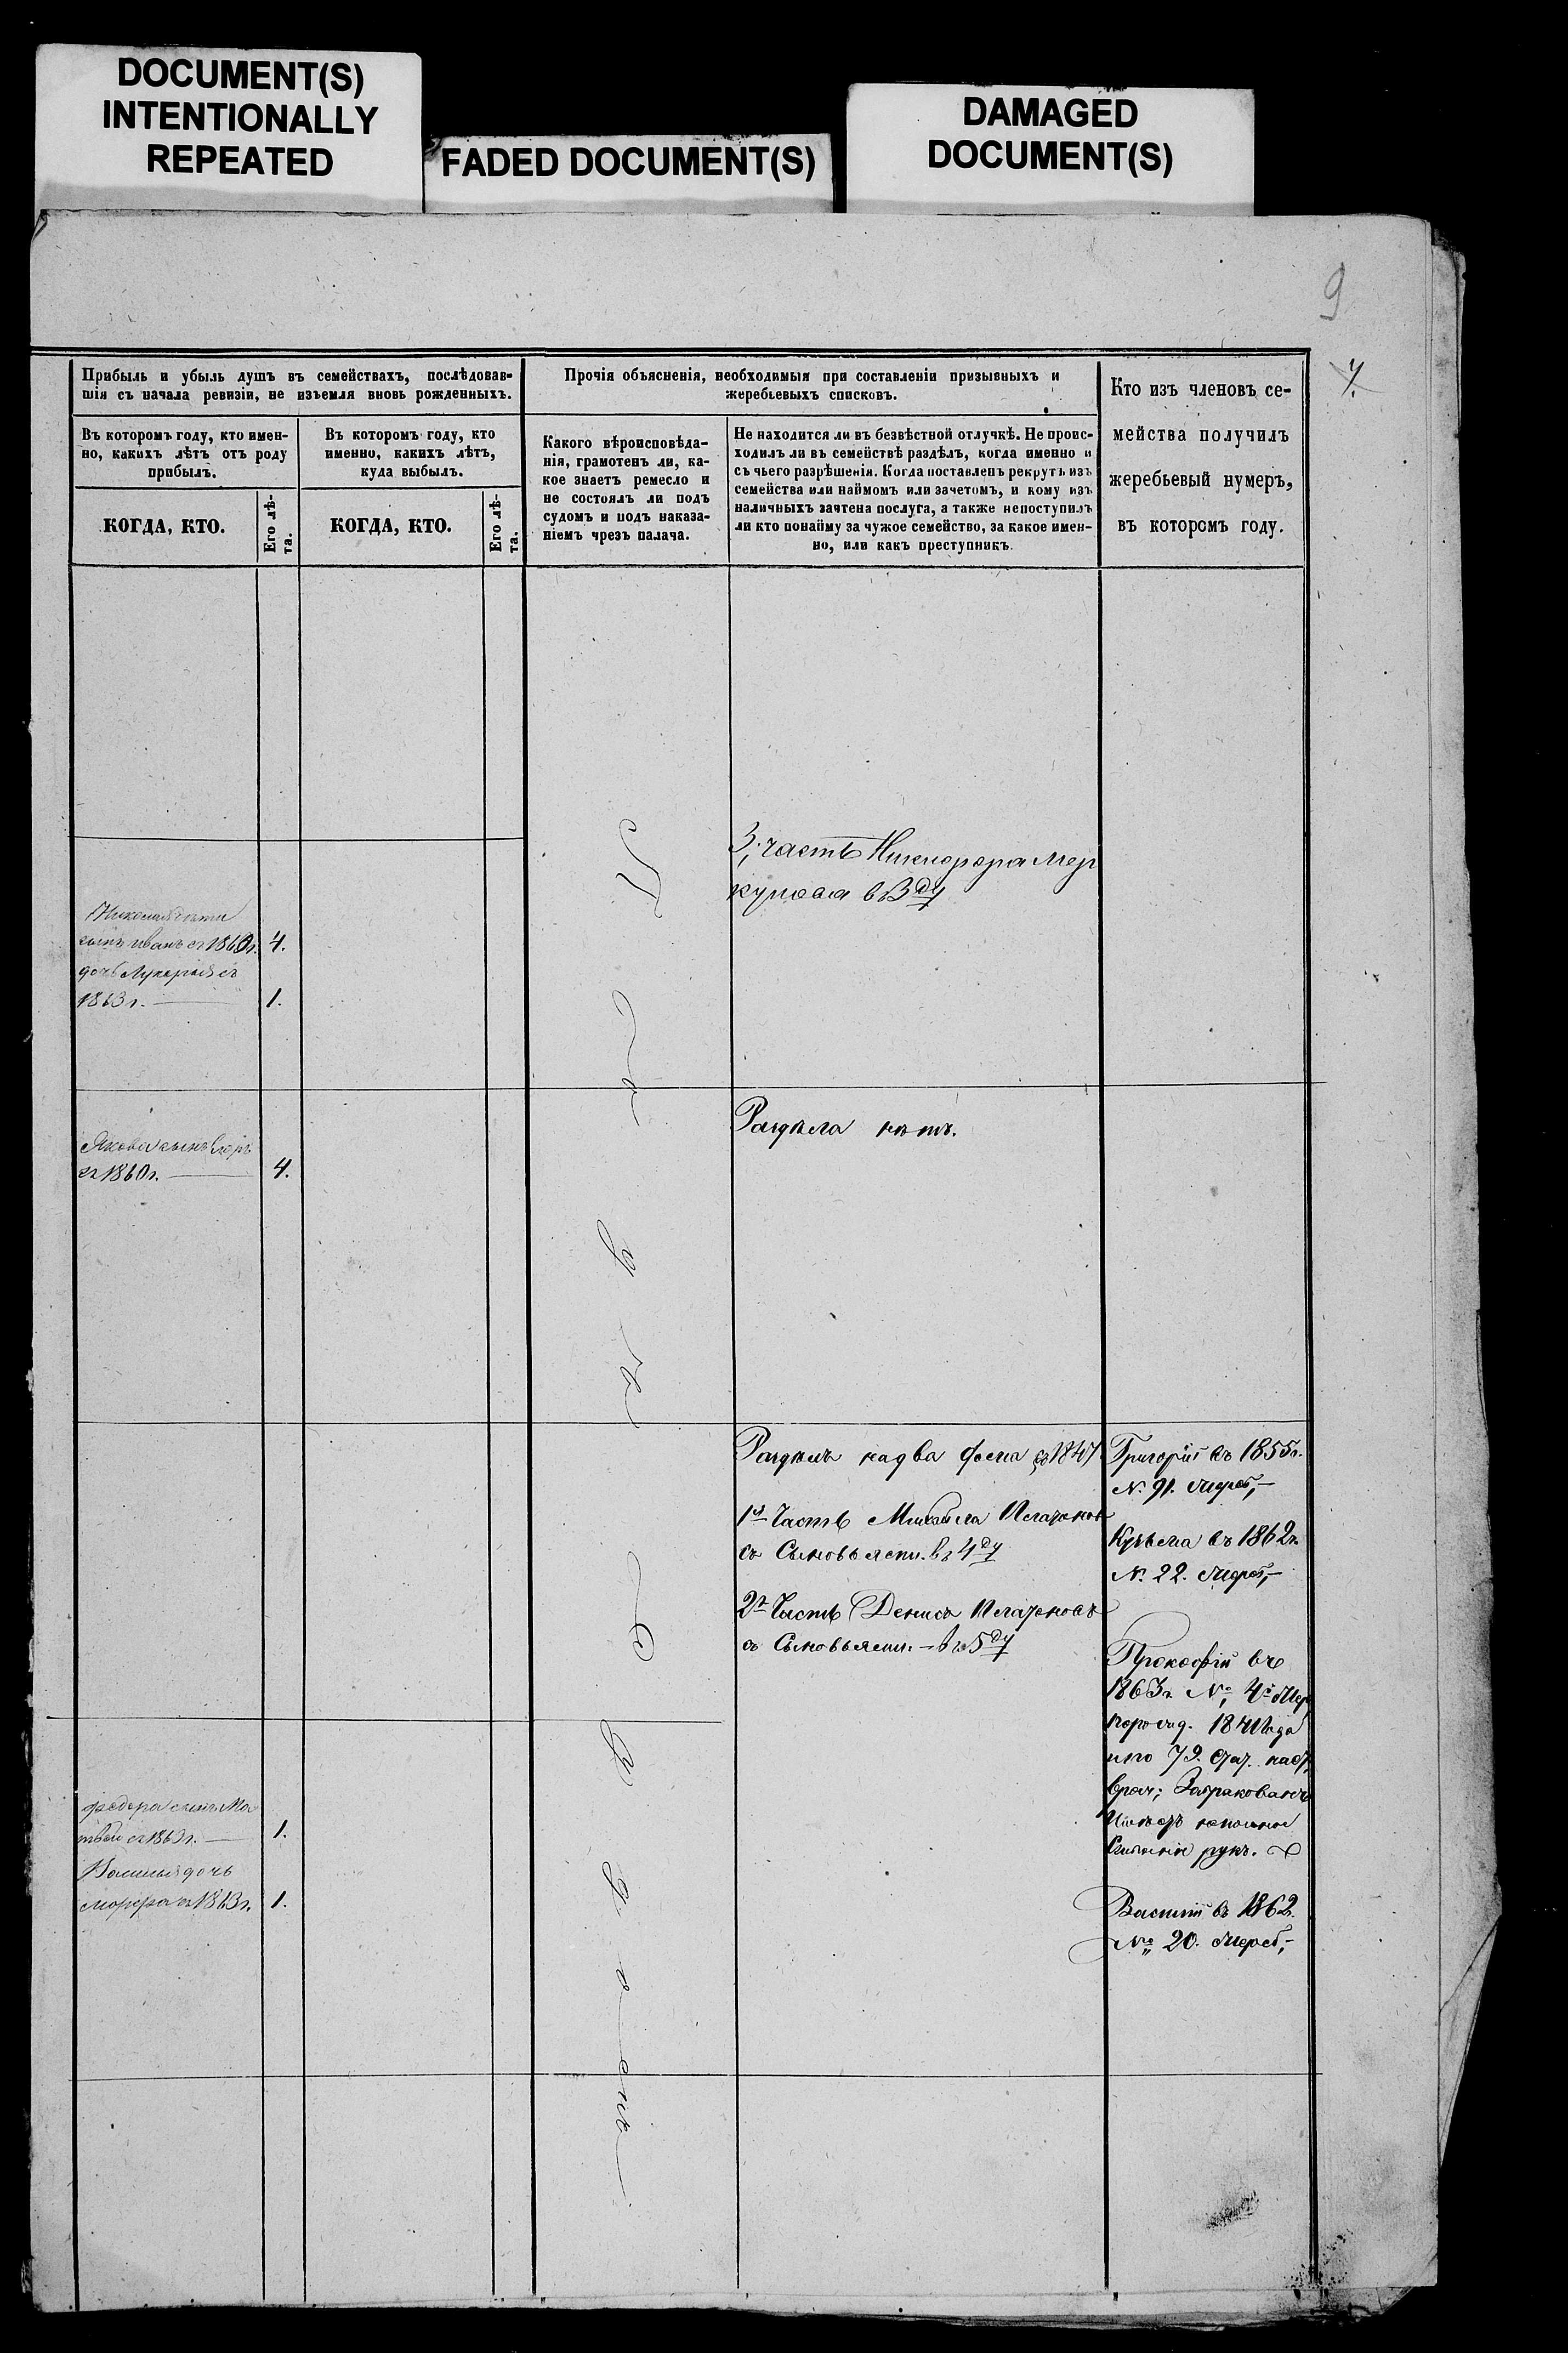 DOCUMENT(S)
INTENTIONALLY
REPEATED
FADED DOCUMENT(S)
DAMAGED
DOCUMENT(S)
9
Прибыль и убыль душъ въ семействахъ, послѣдовав-
шія съ начала ревизіи, не изъемля вновь рожденныхъ.
Въ которомъ году, кто имен-
но, какихъ лѣтъ отъ роду
прибылъ.
КОГДА, КТО.
Его лѣ-
та.
Въ которомъ году, кто
именно, какихъ лѣтъ,
куда выбылъ.
КОГДА, КТО.
Его лѣ-
та.
Прочія объясненія, необходимыя при составленіи призывныхъ и
жеребьевыхъ списковъ.
Какого вѣроисповѣда-
нія, грамотенъ ли, ка-
кое знаетъ ремесло и
не состоялъ ли подъ
судомъ и подъ наказа-
ніемъ чрезъ палача.
Не находится ли въ безвѣстной отлучкѣ. Не проис-
ходилъ ли въ семействѣ раздѣлъ, когда именно и
съ чьего разрѣшенія. Когда поставленъ рекрутъ изъ
семейства или наймомъ или зачетомъ, и кому изъ
наличныхъ зачтена послуга, а также непоступилъ
ли кто понайму за чужое семейство, за какое имен-
но, или какъ преступникъ.
Кто изъ членовъ се-
мейства получилъ
жеребьевый нумеръ,
въ которомъ году.
3; часть Никифора Мер
кулова в 3ду
сынъ иванъ съ 1860г. 4.
дочь Лукерья съ
1863г. 1.
Раздѣла нѣтъ.
Якова сынъ
съ 1860г. 4.
Раздѣлъ на два 1847
1я Часть Михайла
съ Сыновьями. въ 4ду
2я Часть Дениса
съ Сыновьями. — въ 5ду
Григорій въ 1855г.
№. 91.
Кузьма въ 1862г.
№. 22.
Прокофій въ
1863г. №
1841 года
и по 79.
Забракованъ
рукъ.
Василій въ 1862.
№ 20. Жереб,-
федора сынъ Ма
твей съ 1863г. 1.
Василья дочь
съ 1863г. 1.